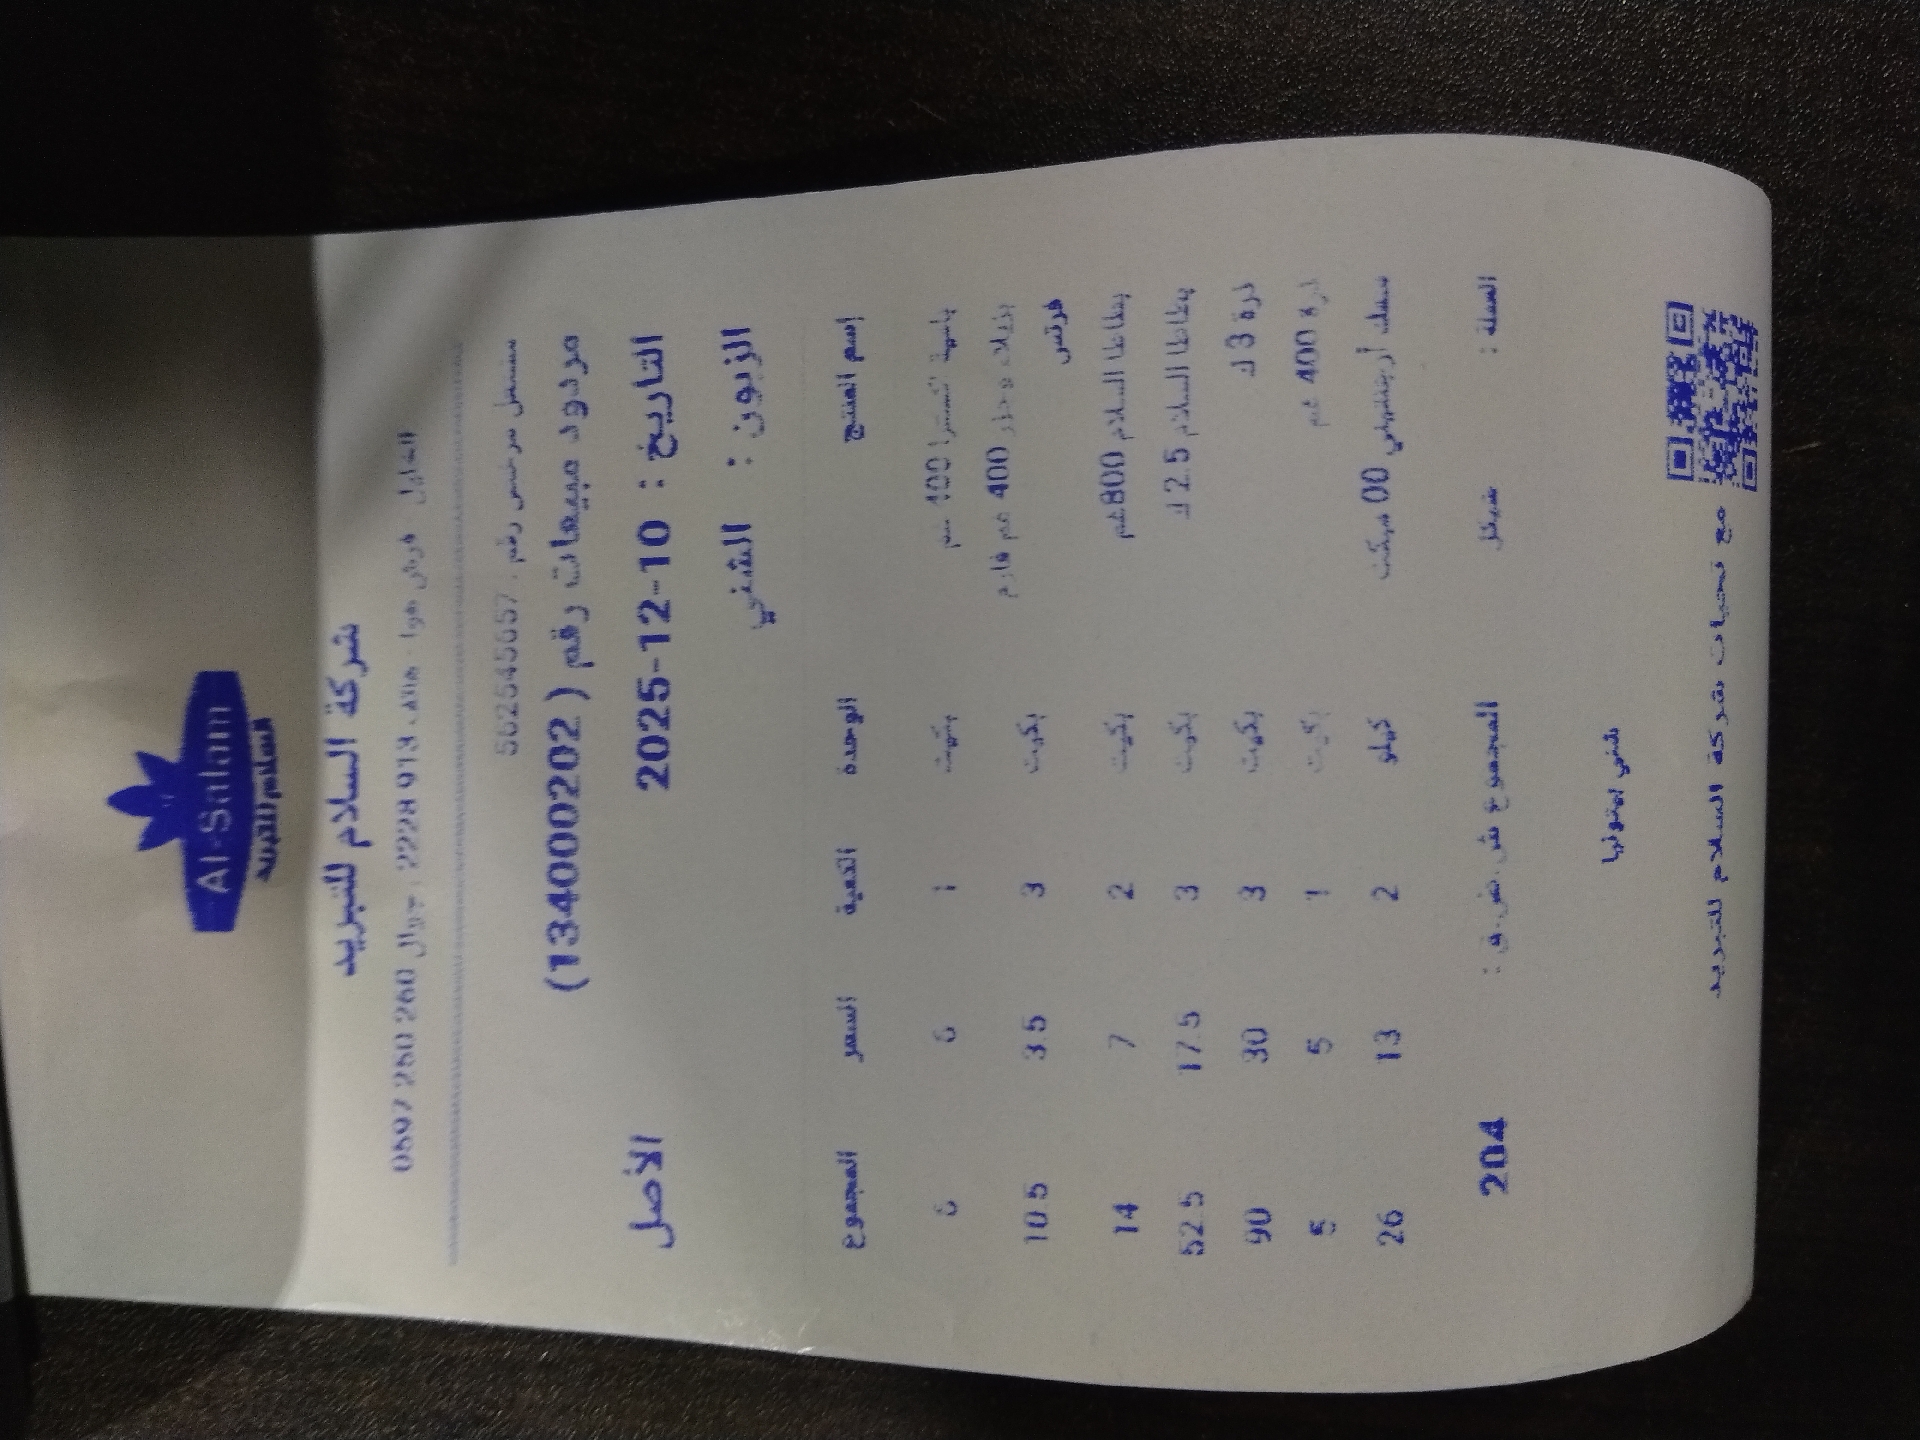 Al-Salam
السلام للتبريد
شركة السلام للتبريد
هاتف 2228 913 جوال 0597 260 260
مشتغل مرخص رقم 562545657
مردود مبيعات رقم (1340000202)
التاريخ : 2025-12-10 الأصل
الزبون :
إسم المنتج الوحدة الكمية السعر المجموع
بامية 400 بكيت 1 6 6
بازيلاء و جزر 400 غم فارم بكيت 3 3.5 10.5
فرتس
بطاطا السلام 800غم بكيت 2 7 14
بطاطا السلام 2.5 ك بكيت 3 17.5 52.5
ذرة 3 ك بكيت 3 30 90
ذرة 400 غم بكيت 1 5 5
سمك أرجنتيني 00 كيلو 2 13 26
العملة : شيكل المجموع ش.ض.ق : 204
مع تحيات شركة السلام للتبريد